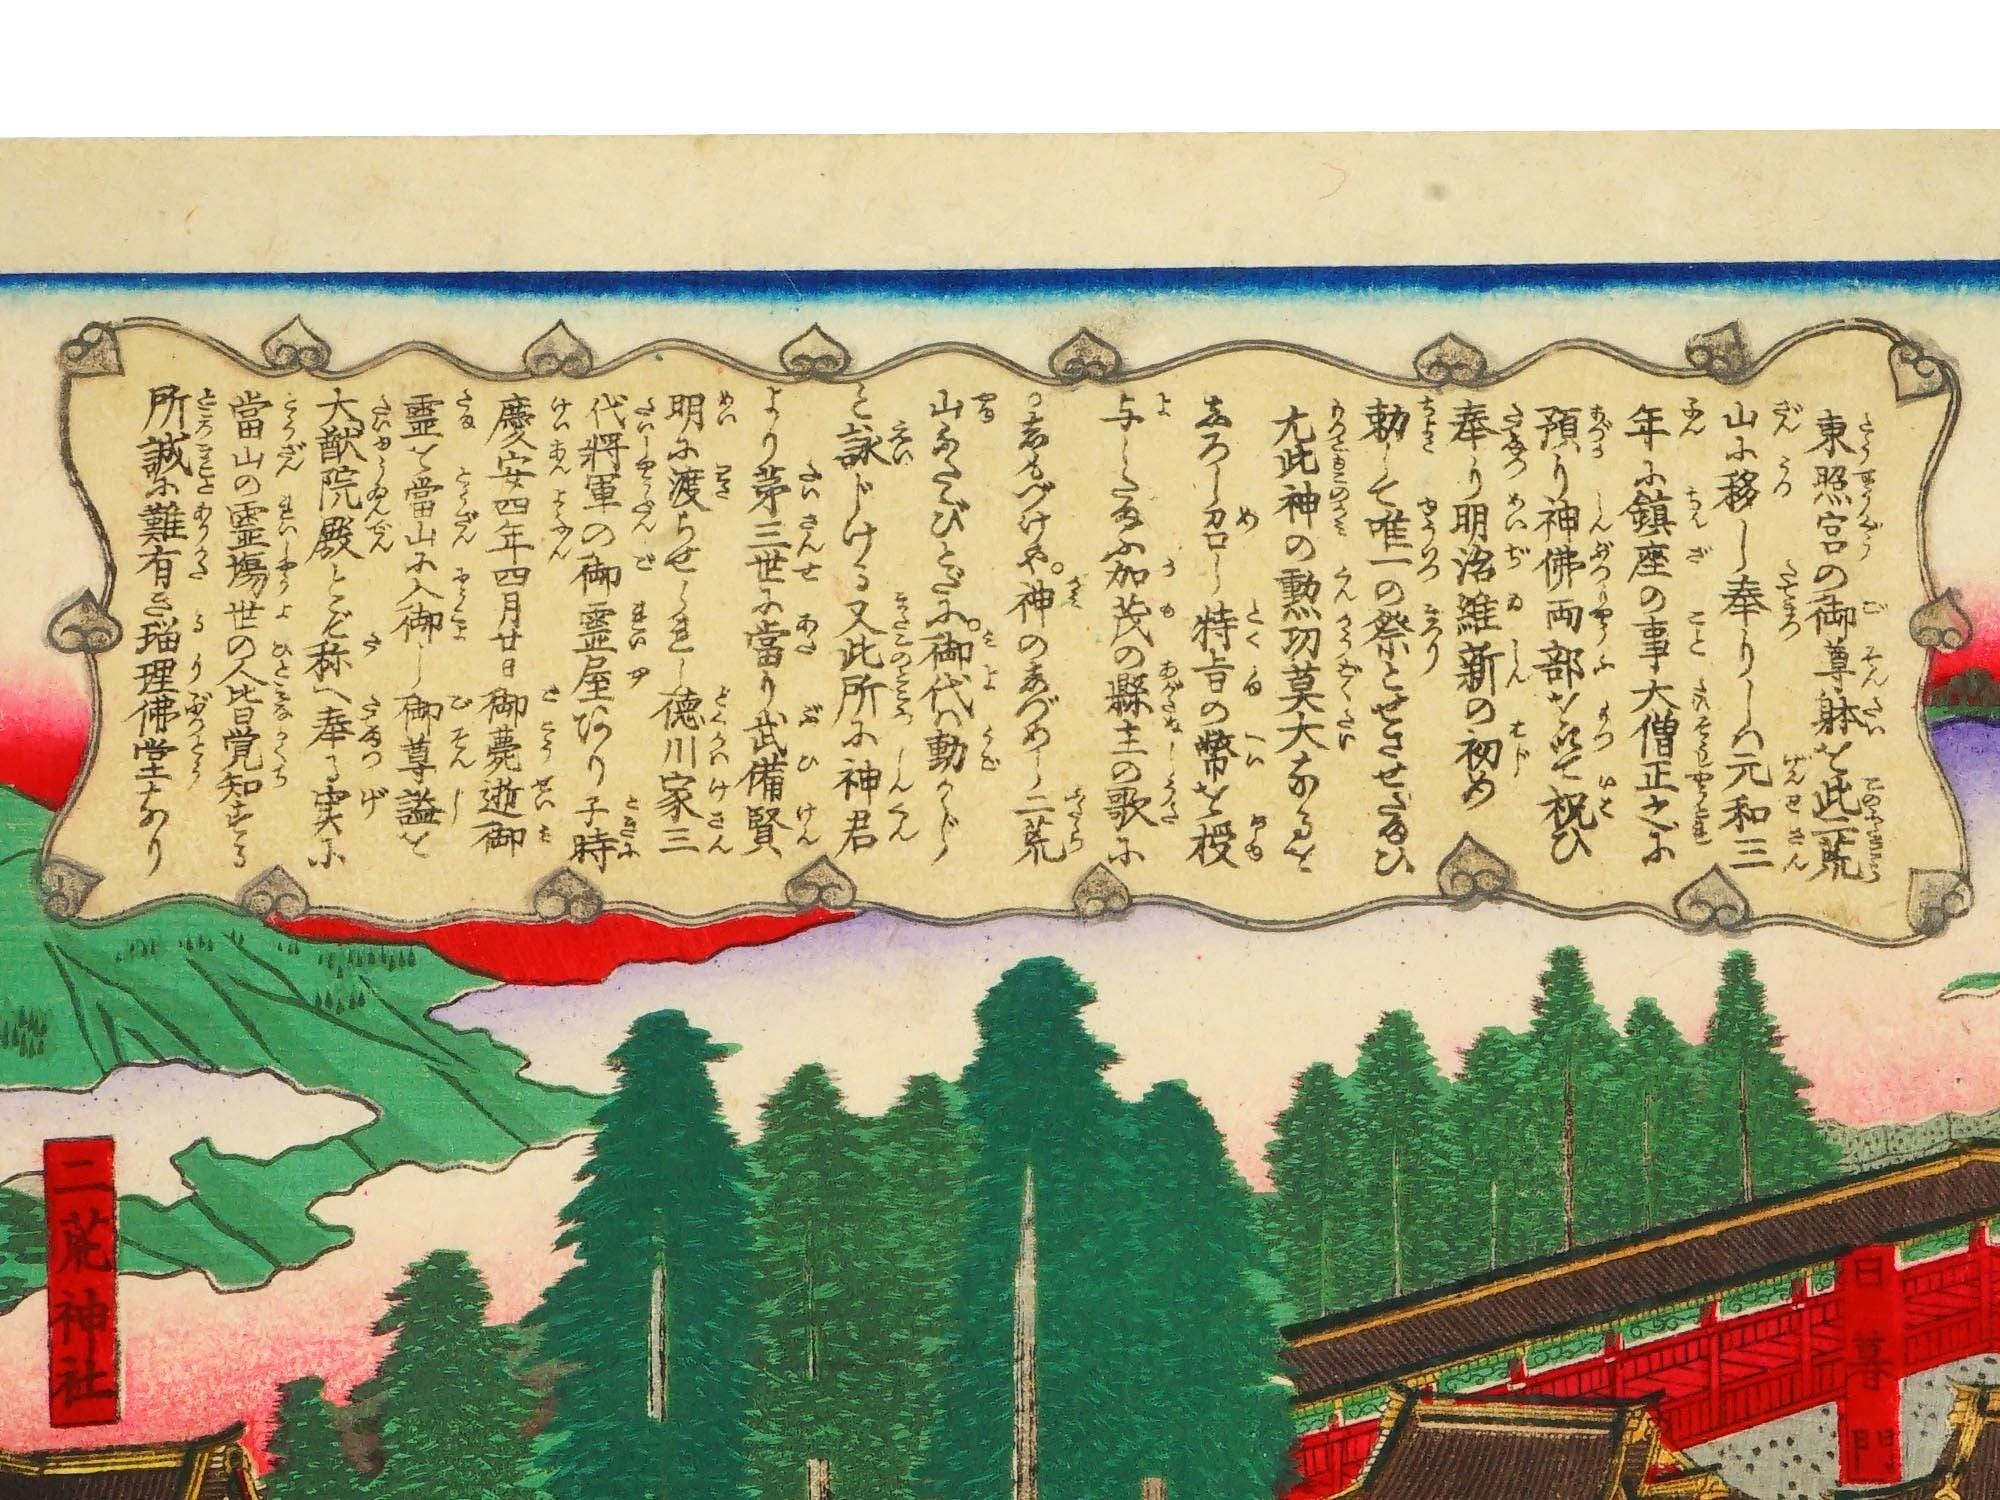 東照宮の御尊躰を此二荒
山に移し奉りしハ元和三
年に鎮座の事大僧正
預り神佛両部を以て祝ひ
奉り明治維新の初め
勅して唯一の祭とせさせたまひ
尤此神の勲功莫大なるを
しろし召し特旨の幣を授
与したまふ加茂の縣主の歌に
志もづけや神の志づめし二荒
山ふたゝびとだに御代ハ動かじ
と詠じける又此所に神君
より第三世に當り武備賢
明に渡らせられし徳川家三
代将軍の御霊屋あり子時
慶安四年四月廿日御薨逝御
霊を當山に入御し御尊謚を
大猷院殿とぞ称へ奉る実に
當山の霊場世の人皆覚知する
所誠に難有き瑠理佛堂なり
二荒神社
日暮門